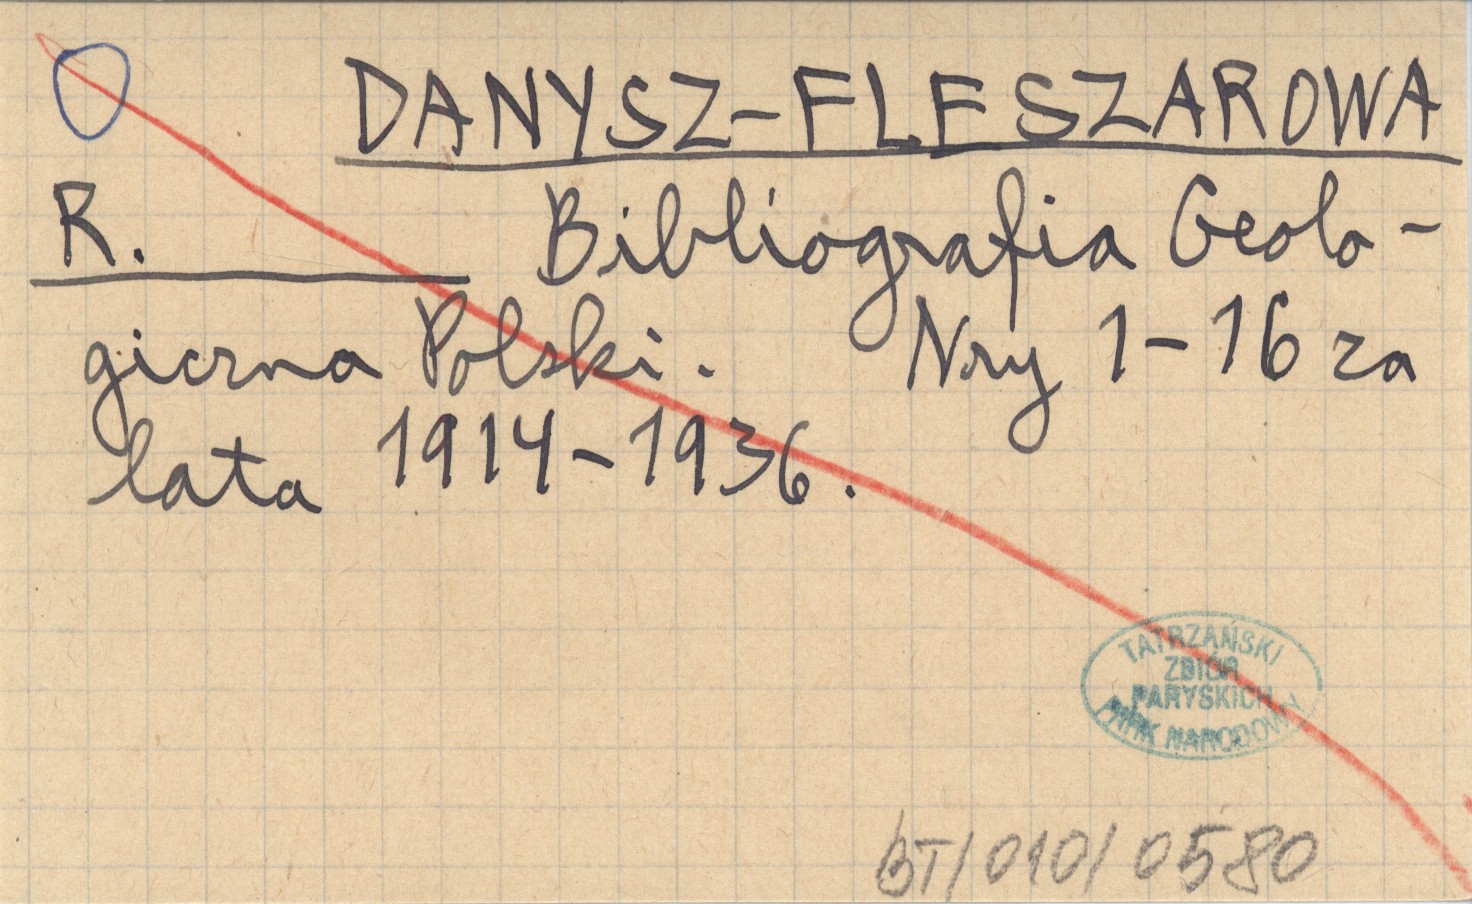 DANYSZ-FLESZAROWA
R. Bibliografia Geolo-
giczna Polski. Nry 1-16 za
lata 1914-1936.
TATRZAŃSKI
ZBIÓR
PARYSKICH
PARK NARODOWY
BT/010/0580